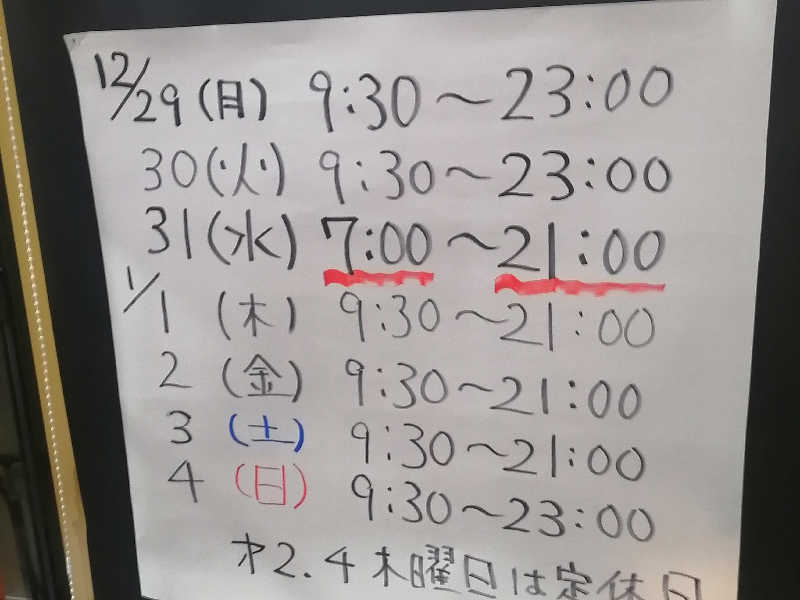 12/29(月) 9:30～23:00
30(火) 9:30～23:00
31(水) 7:00～21:00
1/1 (木) 9:30～21:00
2 (金) 9:30～21:00
3 (土) 9:30～21:00
4 (日) 9:30～23:00
才2.4木曜日は定休日